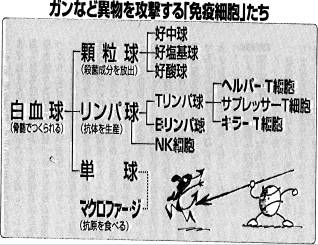 ガンなど異物を攻撃する「免疫細胞」たち
白血球
(骨髄でつくられる)
顆粒球
(殺菌成分を放出)
好中球
好塩基球
好酸球
リンパ球
(抗体を生産)
Tリンパ球
B・リンパ球
NK細胞
ヘルパーT細胞
サプレッサーT細胞
キラーT細胞
単球
マクロファージ
(抗原を食べる)